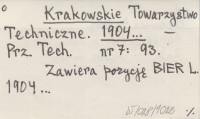 o
Krakowskie Towarzystwo
Techniczne. 1904...
Prz. Tech. nr 7: 93.
Zawiera pozycję BIER L.
1904...